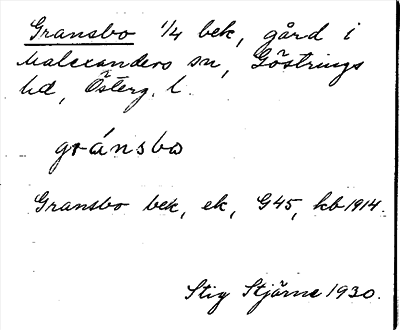 Gransbo 1/4 bek, gård i
Malexanders sn, Göstrings
hd, Österg. l.
gránsbo
Gransbo bek, ek, G45, kb 1914.
Stig Stjärne 1930.